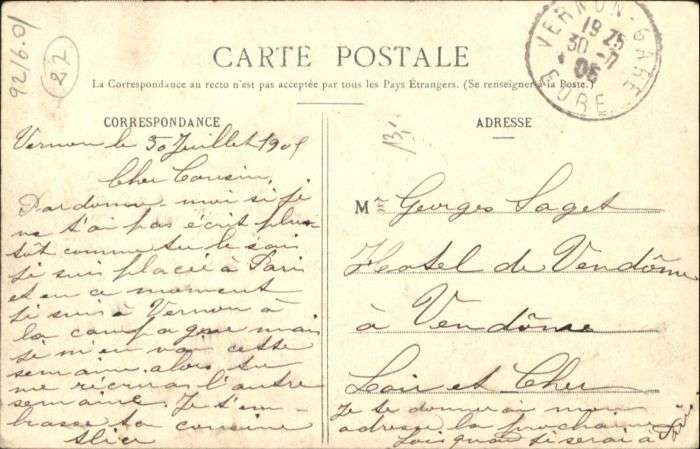 92/6.01
22
CARTE POSTALE
La Correspondance au recto n'est pas acceptée par tous les Pays Étrangers. (Se renseigner à la Poste.)
VERNON-GARE
19 25
30 -7
05
EURE
CORRESPONDANCE
Vernon le 30 Juillet 1905
Cher Cousin,
Pardonne moi si je
ne t'ai pas écrit plus
tôt comme tu le sais
je suis placée à Paris
et en ce moment
je suis à Vernon à
la campagne mais
je m'en vai cette
semaine alors tu
me récriras l'autre
semaine. Je t'em-
brasse ta cousine
Alice
ADRESSE
Mr Georges Saget
Hotel de Vendôme
à Vendôme
Loir et Cher
Je te donnerai mon
adresse la prochaine
fois quand je serai à Paris